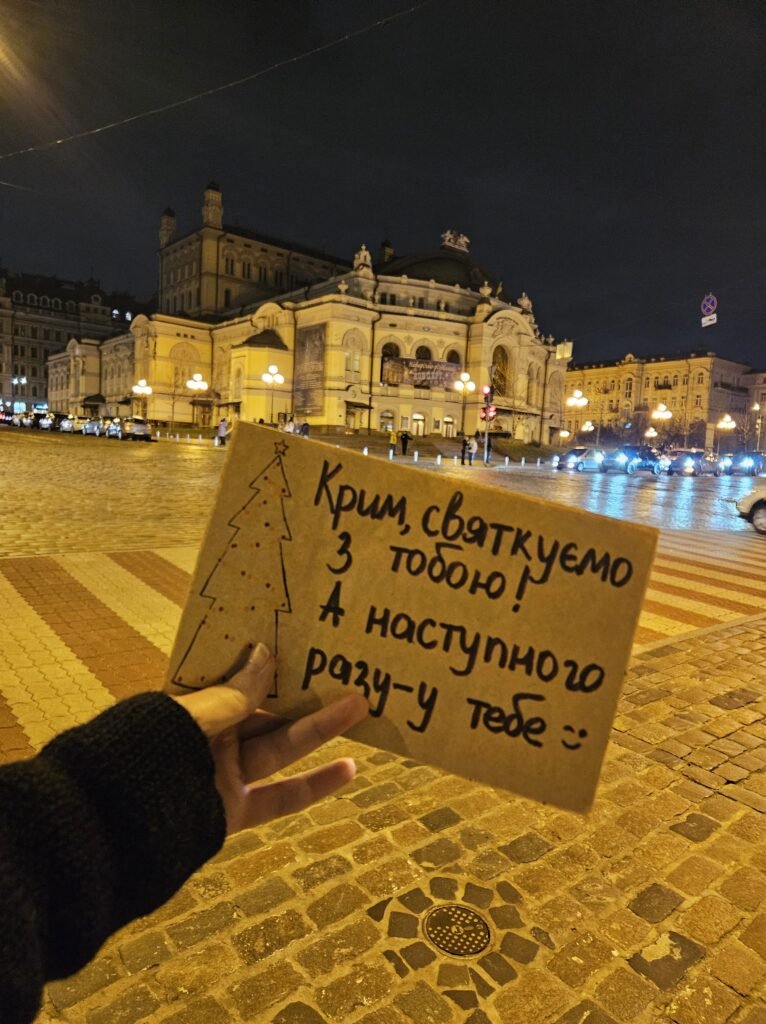 Крим, святкуємо
з тобою!
А наступного
разу-у тебе :)